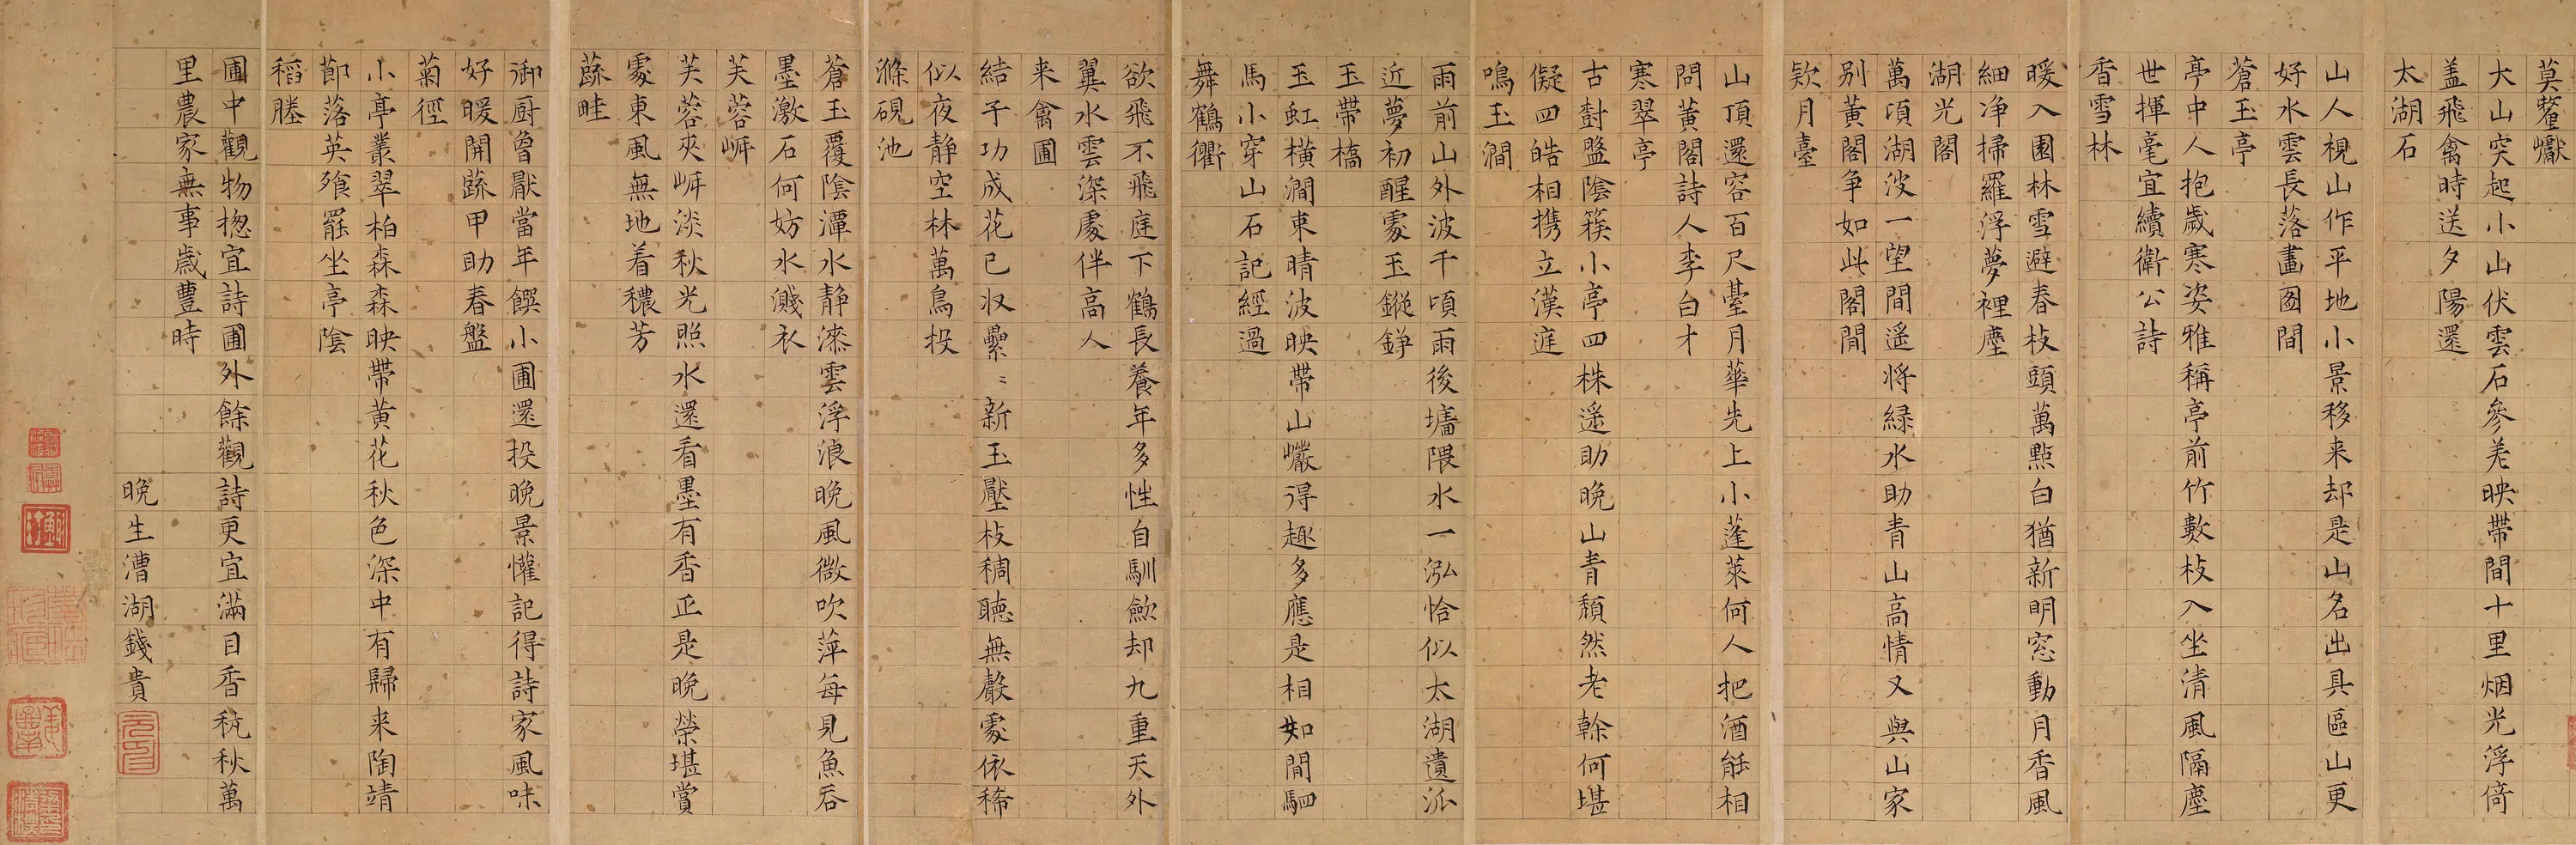 莫釐巘
大山突起小山伏雲石參差映帶間十里烟光浮倚
盖飛禽時送夕陽還
太湖石
山人視山作平地小景移来却是山名出具區山更
好水雲長落畫圖間
蒼玉亭
亭中人抱歲寒姿雅稱亭前竹數枝入坐清風隔塵
世揮毫宜續衛公詩
香雪林
暖入園林雪避春枝頭萬點白猶新明窓動月香風
細净掃羅浮夢裡塵
湖光閣
萬項湖波一望間遥将緑水助青山高情又與山家
别黄閣争如此閣閒
款月臺
山頂還容百尺臺月華先上小蓬萊何人把酒能相
問黄閣詩人李白才
寒翠亭
古樹盤陰簇小亭四株遥助晚山青頽然老榦何堪
儗四皓相携立漢庭
鳴玉澗
雨前山外波千頃雨後墻隈水一泓恰似太湖遺派
近夢初醒處玉鏦錚
玉帶橋
玉虹横澗束晴波映帶山巖得趣多應是相如閒駟
馬小穿山石記經過
舞鶴衢
欲飛不飛庭下鶴長養年多性自馴斂却九重天外
翼水雲深處伴高人
来禽圃
結子功成花已收纍〻新玉壓枝稠聴無聲處依稀
似夜静空林萬鳥投
滌硯池
蒼玉覆陰潭水静漆雲浮浪晚風微吹萍每見魚吞
墨激石何妨水濺衣
芙蓉岸
芙蓉夾岸淡秋光照水還看墨有香正是晚榮堪賞
處東風無地着穠芳
蔬畦
御厨曾厭當年饌小圃還投晚景懽記得詩家風味
好暖開蔬甲助春盤
菊徑
小亭叢翠柏森森映帶黄花秋色深中有歸来陶靖
節落英飱罷坐亭陰
稻塍
圃中觀物揔宜詩圃外餘觀詩更宜滿目香秔秋萬
里農家無事歲豊時
晚生漕湖錢貴